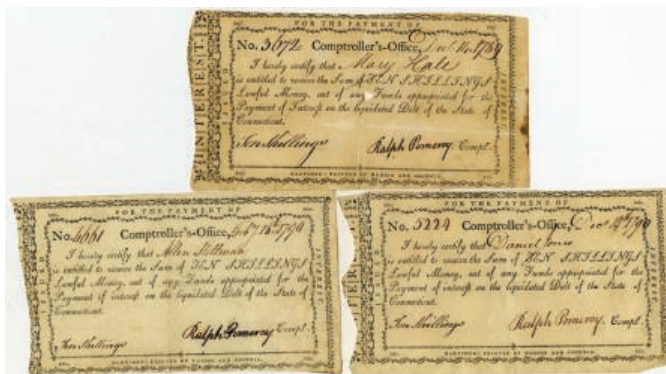 FOR THE PAYMENT OF
INTEREST.
No. 3672 Comptroller's-Office, 1789
I hereby certify that Mary Hale
is entitled to receive the Sum of TEN SHILLINGS
Lawful Money, out of any Funds appropriated for the
Payment of Interest on the liquidated Debt of the State of
Connecticut.
Ten Shillings Ralph Pomeroy Compt.
HARTFORD: PRINTED BY HUDSON AND GOODWIN.
FOR THE PAYMENT OF
No. 4661 Comptroller's-Office, 1790
I hereby certify that Allen
is entitled to receive the Sum of TEN SHILLINGS
Lawful Money, out of any Funds appropriated for the
Payment of interest on the liquidated Debt of the State of
Connecticut.
Ten Shillings Ralph Pomeroy Compt.
HARTFORD: PRINTED BY HUDSON AND GOODWIN.
FOR THE PAYMENT OF
INTEREST
No. 5224 Comptroller's-Office, 1790
I hereby certify that Daniel Jones
is entitled to receive the Sum of TEN SHILLINGS
Lawful Money, out of any Funds appropriated for the
Payment of interest on the liquidated Debt of the State of
Connecticut.
Ten Shillings Ralph Pomeroy Compt.
HARTFORD: PRINTED BY HUDSON AND GOODWIN.